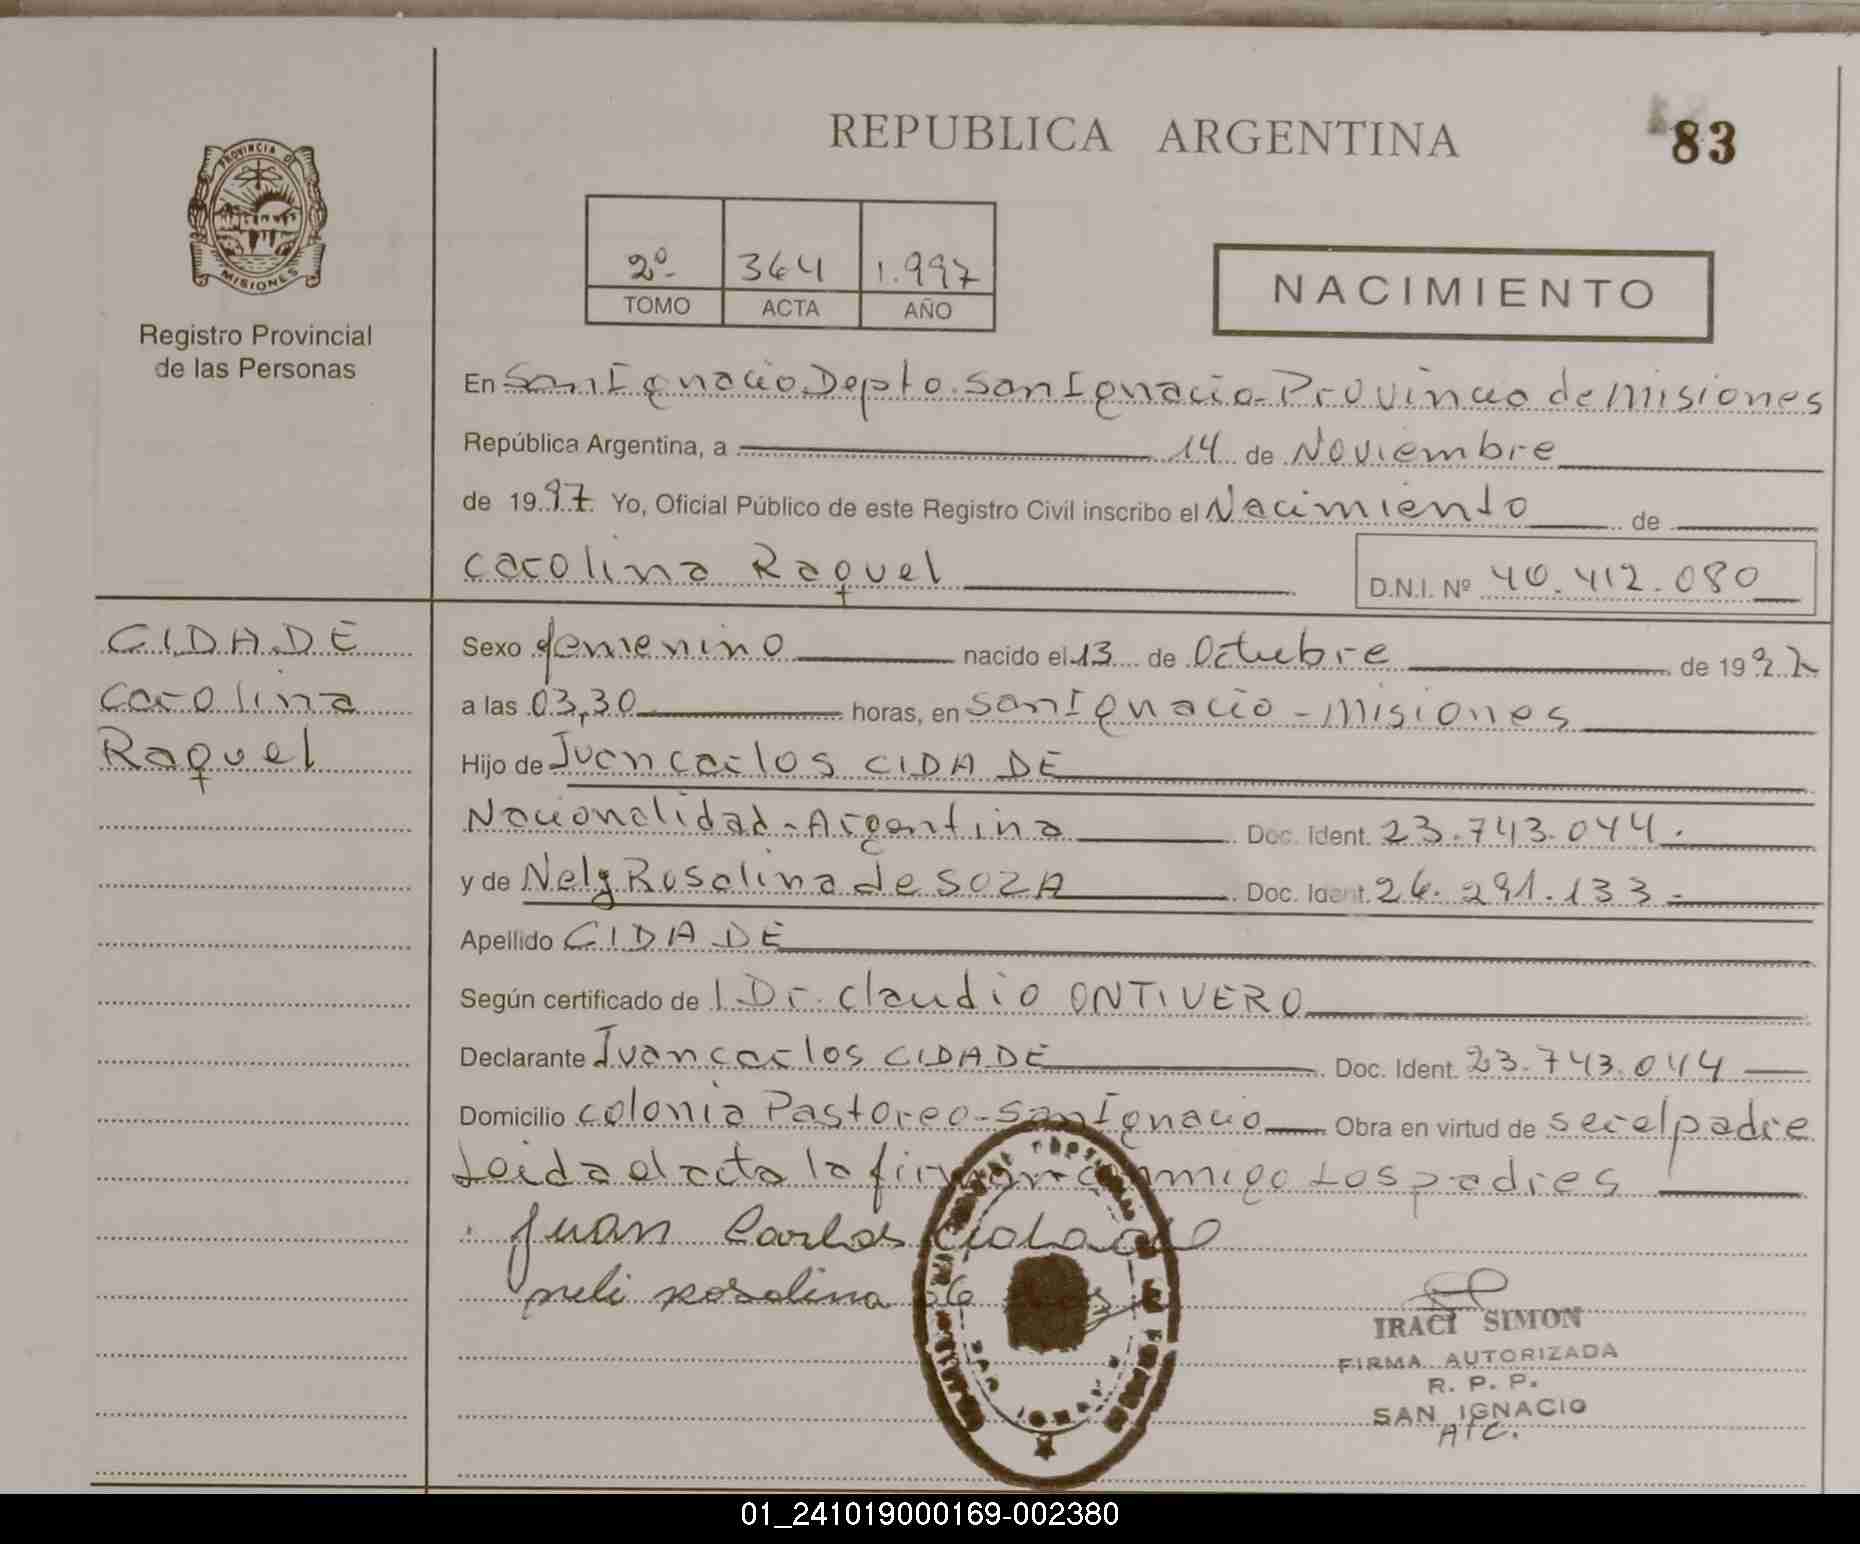 REPUBLICA ARGENTINA
83
PROVINCIA DE
MISIONES
Registro Provincial
de las Personas
2º 364 1.997
TOMO ACTA AÑO
NACIMIENTO
En San Ignacio Depto. San Ignacio - Provincia de Misiones
República Argentina, a 14 de Noviembre
de 1997. Yo, Oficial Público de este Registro Civil inscribo el Nacimiento de
Carolina Raquel D.N.I. Nº 40.412.080
CIDADE
Carolina
Raquel
Sexo femenino nacido el 13 de Octubre de 1997
a las 03,30 horas, en San Ignacio - Misiones
Hijo de Juan Carlos CIDADE
Nacionalidad - Argentina Doc. Ident. 23.743.044.
y de Nely Rosalina de SOZA Doc. Ident. 26.291.133 -
Apellido CIDADE
Según certificado de l Dr. Claudio ONTIVERO
Declarante Juan Carlos CIDADE Doc. Ident. 23.743.044
Domicilio Colonia Pastoreo - San Ignacio Obra en virtud de ser el padre
Leida el acta la firman conmigo Los padres
Juan Carlos Cidade
neli rosalina de
IRACI SIMON
FIRMA AUTORIZADA
R. P. P.
SAN IGNACIO
A/C.
01_241019000169-002380